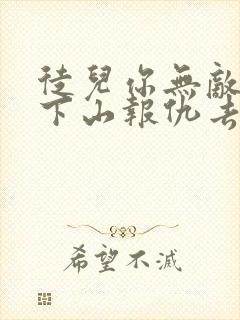 徒兒你無敵
下山報仇去
希望不滅